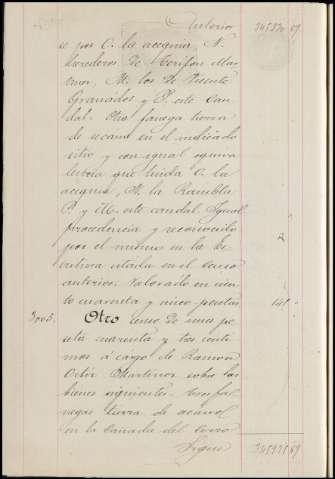 Anterior 345830 69
se por O. la acequia, N.
herederos de
M. los de Vicente
Granados y P. este cau-
dal. Otra fanega tierra
de secano en el indicado
sitio y con igual equiva-
lencia que linda O. la
acequia, N. la Rambla
P. y M. este caudal. Igual
procedencia y reconocido
por el mismo en la es-
critura citada en el censo
anterior. Valorado en cien-
to cuarenta y cinco pesetas
3005. Otro censo de una pe-
seta cuarenta y tres cénti-
mos á cargo de Ramon
Ortiz Martinez sobre los
bienes siguientes. fa-
negas tierra de secano
en la Cañada del Cerro
Sigue